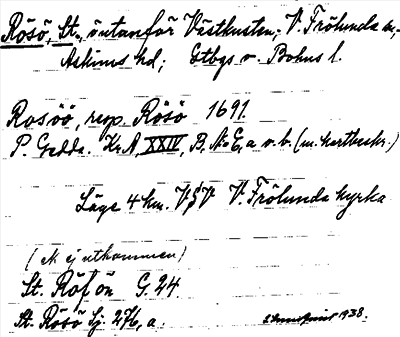 Rösö, St., öutanför Västkusten; V. Frölunda sn,
Askims hd; Gtbgs o. Bohus l.
Rosöö, resp. Rösö 1691.
P. Gedda. Kr.A, XXIV, B, N:o E, a o. b. (m. kartbeskr.)
Läge 4 km. V§V V. Frölunda kyrka
(ek ej utkommen)
St. Röfön G. 24
St. Rösö Sj. 276, a.
1938.